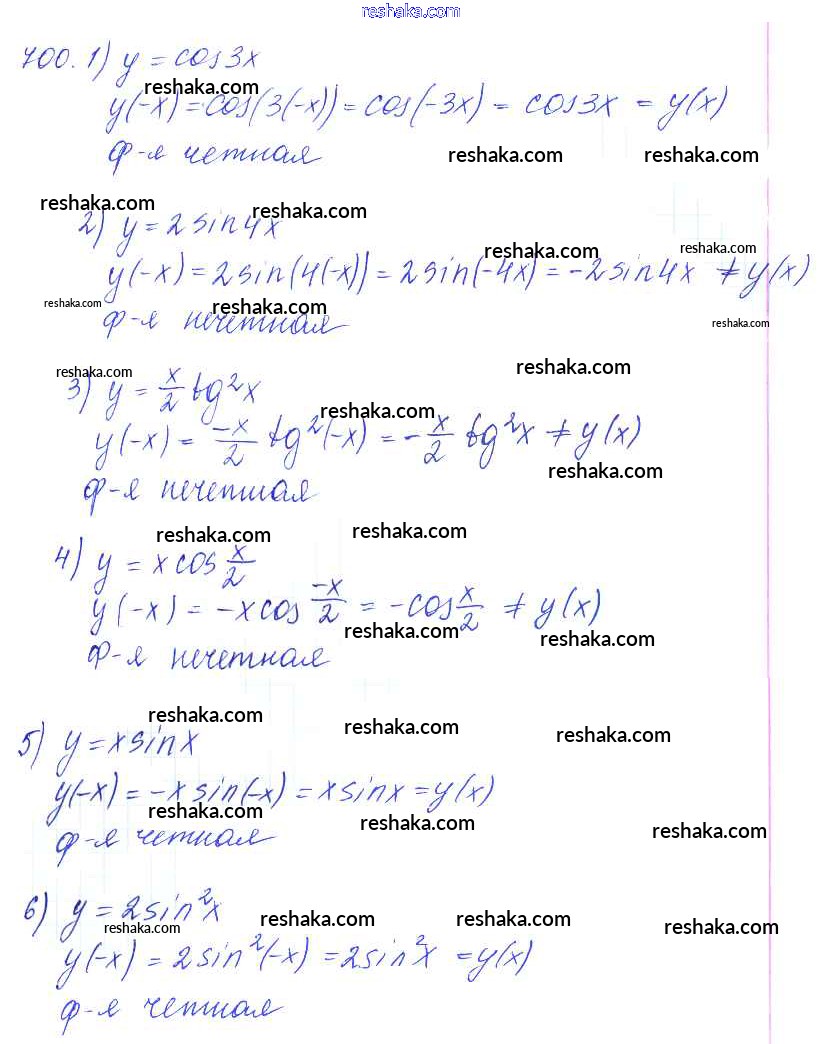 reshaka.com
700. 1) y = cos3x
reshaka.com
y(-x) = cos(3(-x)) = cos(-3x) = cos3x = y(x)
ф-я четная
reshaka.com reshaka.com
reshaka.com reshaka.com
2) y = 2sin4x
reshaka.com reshaka.com
y(-x) = 2sin(4(-x)) = 2sin(-4x) = -2sin4x ≠ y(x)
reshaka.com reshaka.com
ф-я нечетная
reshaka.com
reshaka.com reshaka.com
3) y = x/2 tg²x
reshaka.com
y(-x) = -x/2 tg²(-x) = -x/2 tg²x ≠ y(x)
reshaka.com
ф-я нечетная
reshaka.com reshaka.com
4) y = x cos x/2
y(-x) = -x cos -x/2 = -cos x/2 ≠ y(x)
reshaka.com reshaka.com
ф-я нечетная
reshaka.com reshaka.com reshaka.com
5) y = x sin x
y(-x) = -x sin(-x) = x sin x = y(x)
reshaka.com reshaka.com reshaka.com
ф-я четная
6) y = 2sin²x
reshaka.com reshaka.com reshaka.com reshaka.com
y(-x) = 2sin²(-x) = 2sin²x = y(x)
ф-я четная